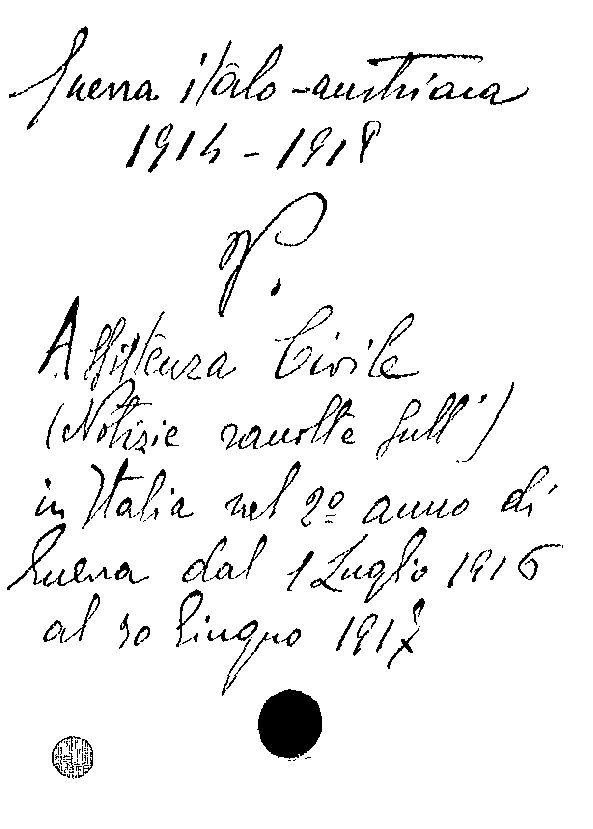 Guerra italo-austriaca
1914-1918
V.
Assistenza Civile
(Notizie raccolte sull')
in Italia nel 2º anno di
Guerra dal 1 Luglio 1916
al 30 Giugno 1917